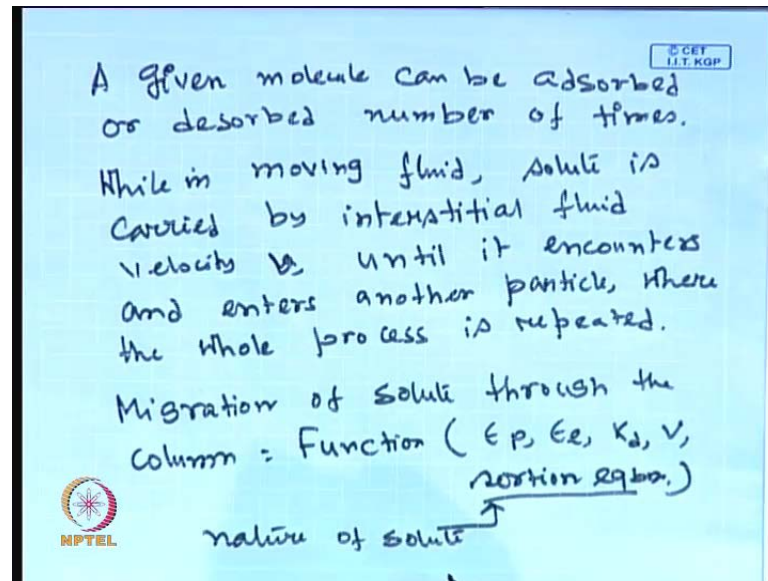 © CET
I.I.T. KGP
A given molecule can be adsorbed
or desorbed number of times.
While in moving fluid, solute is
carried by interstitial fluid
velocity until it encounters
and enters another particle, where
the whole process is repeated.
Migration of solute through the
column = Function ( ϵp, ϵe, Kd, V,
sortion eqbm.)
nature of solute
NPTEL